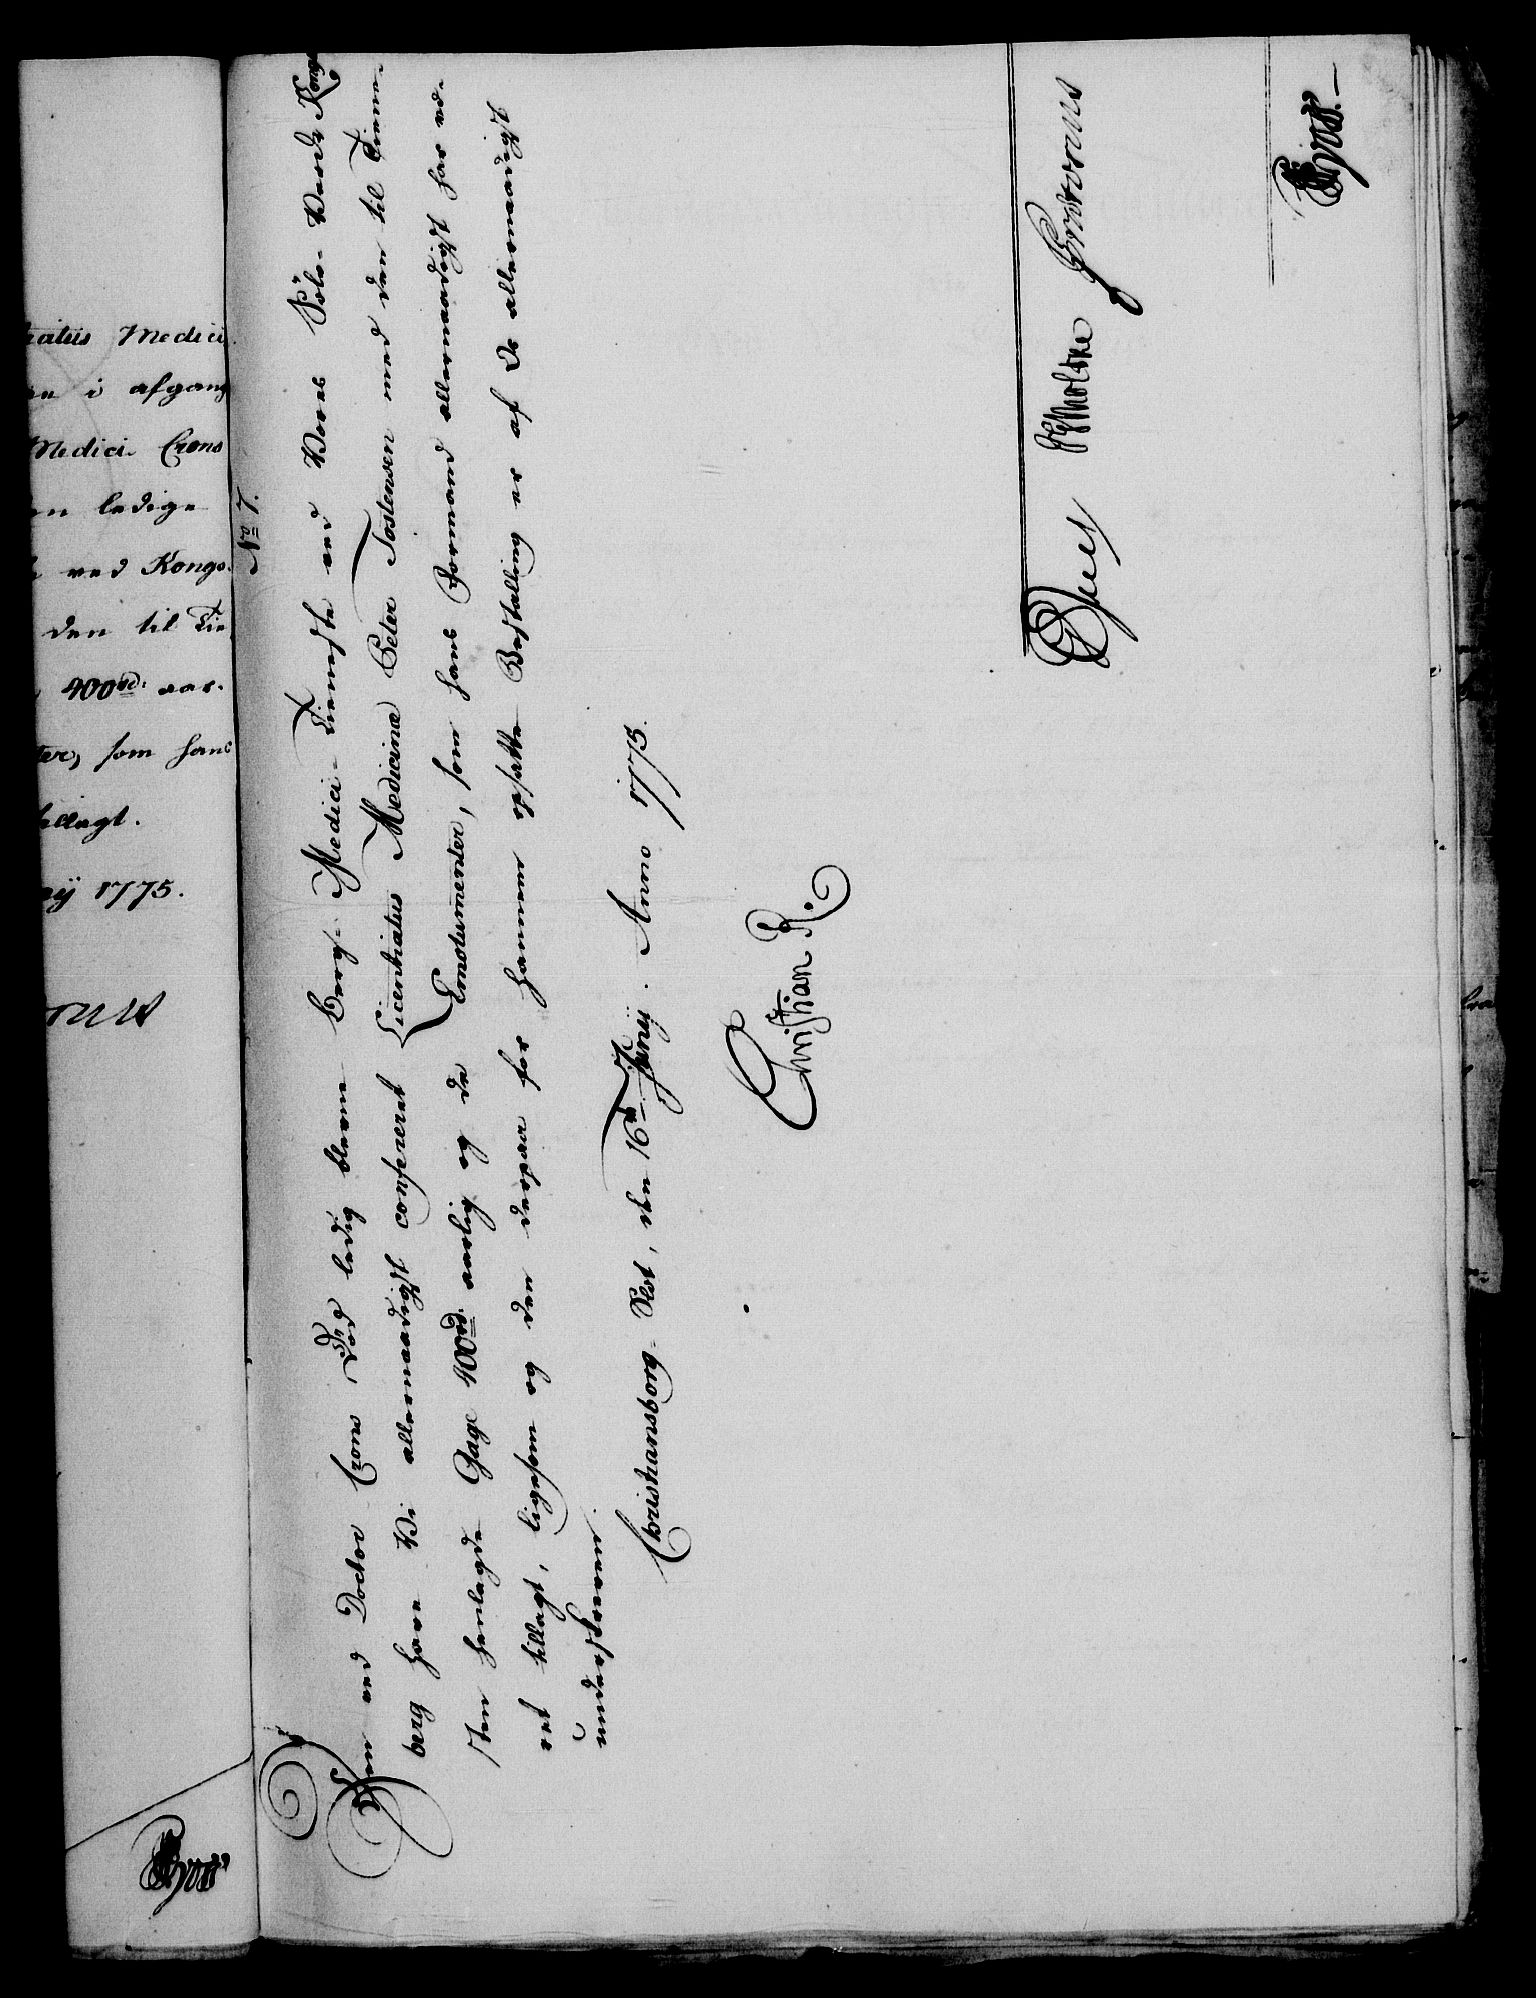 tiatus Medici
en i afgang
Medici Crons
en ledige
ved Kongs-
den til Tie
400 rd. aar-
ter, som hans
tillagt.
nij 1775.
No 7.
Den ved Doctor Crons Død ledig blevne Berg-Medici-Tieneste ved Vores Sølv-Værk Kongs-
berg have Vi allernaadigst confereret Licentiatus Medicinæ Peter Tostensen med den til Tiene-
sten henlagde Gage 400 rd. aarlig og de Emolumenter, som hans Formand allernaadigst har væ-
ret tillagt, ligesom og den derpaa for hannem opsatte Bestalling er af Os allernaadigst
underskreven.
Christiansborg-Slot, den 16de Junij. Anno 1775.
Christian R.